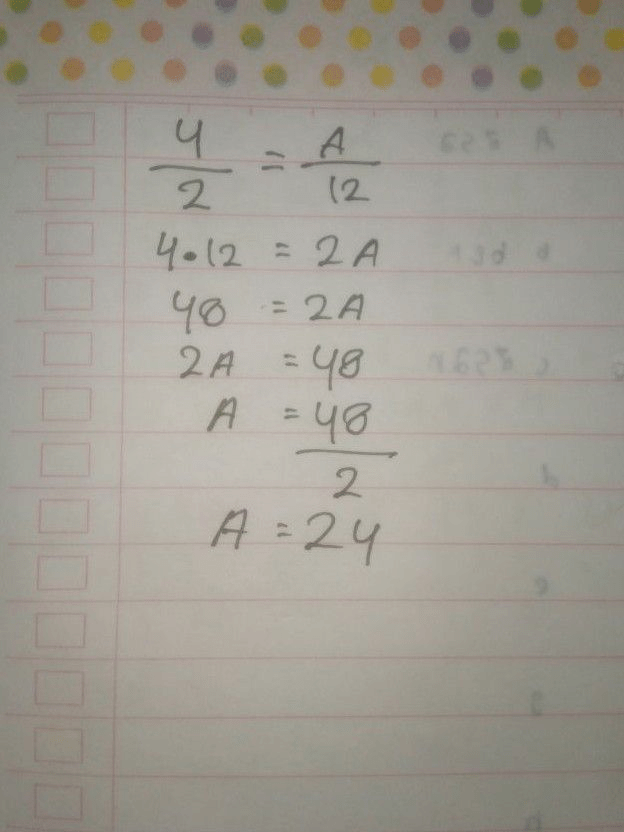 4/2 = A/12
4•12 = 2A
48 = 2A
2A = 48
A = 48/2
A = 24